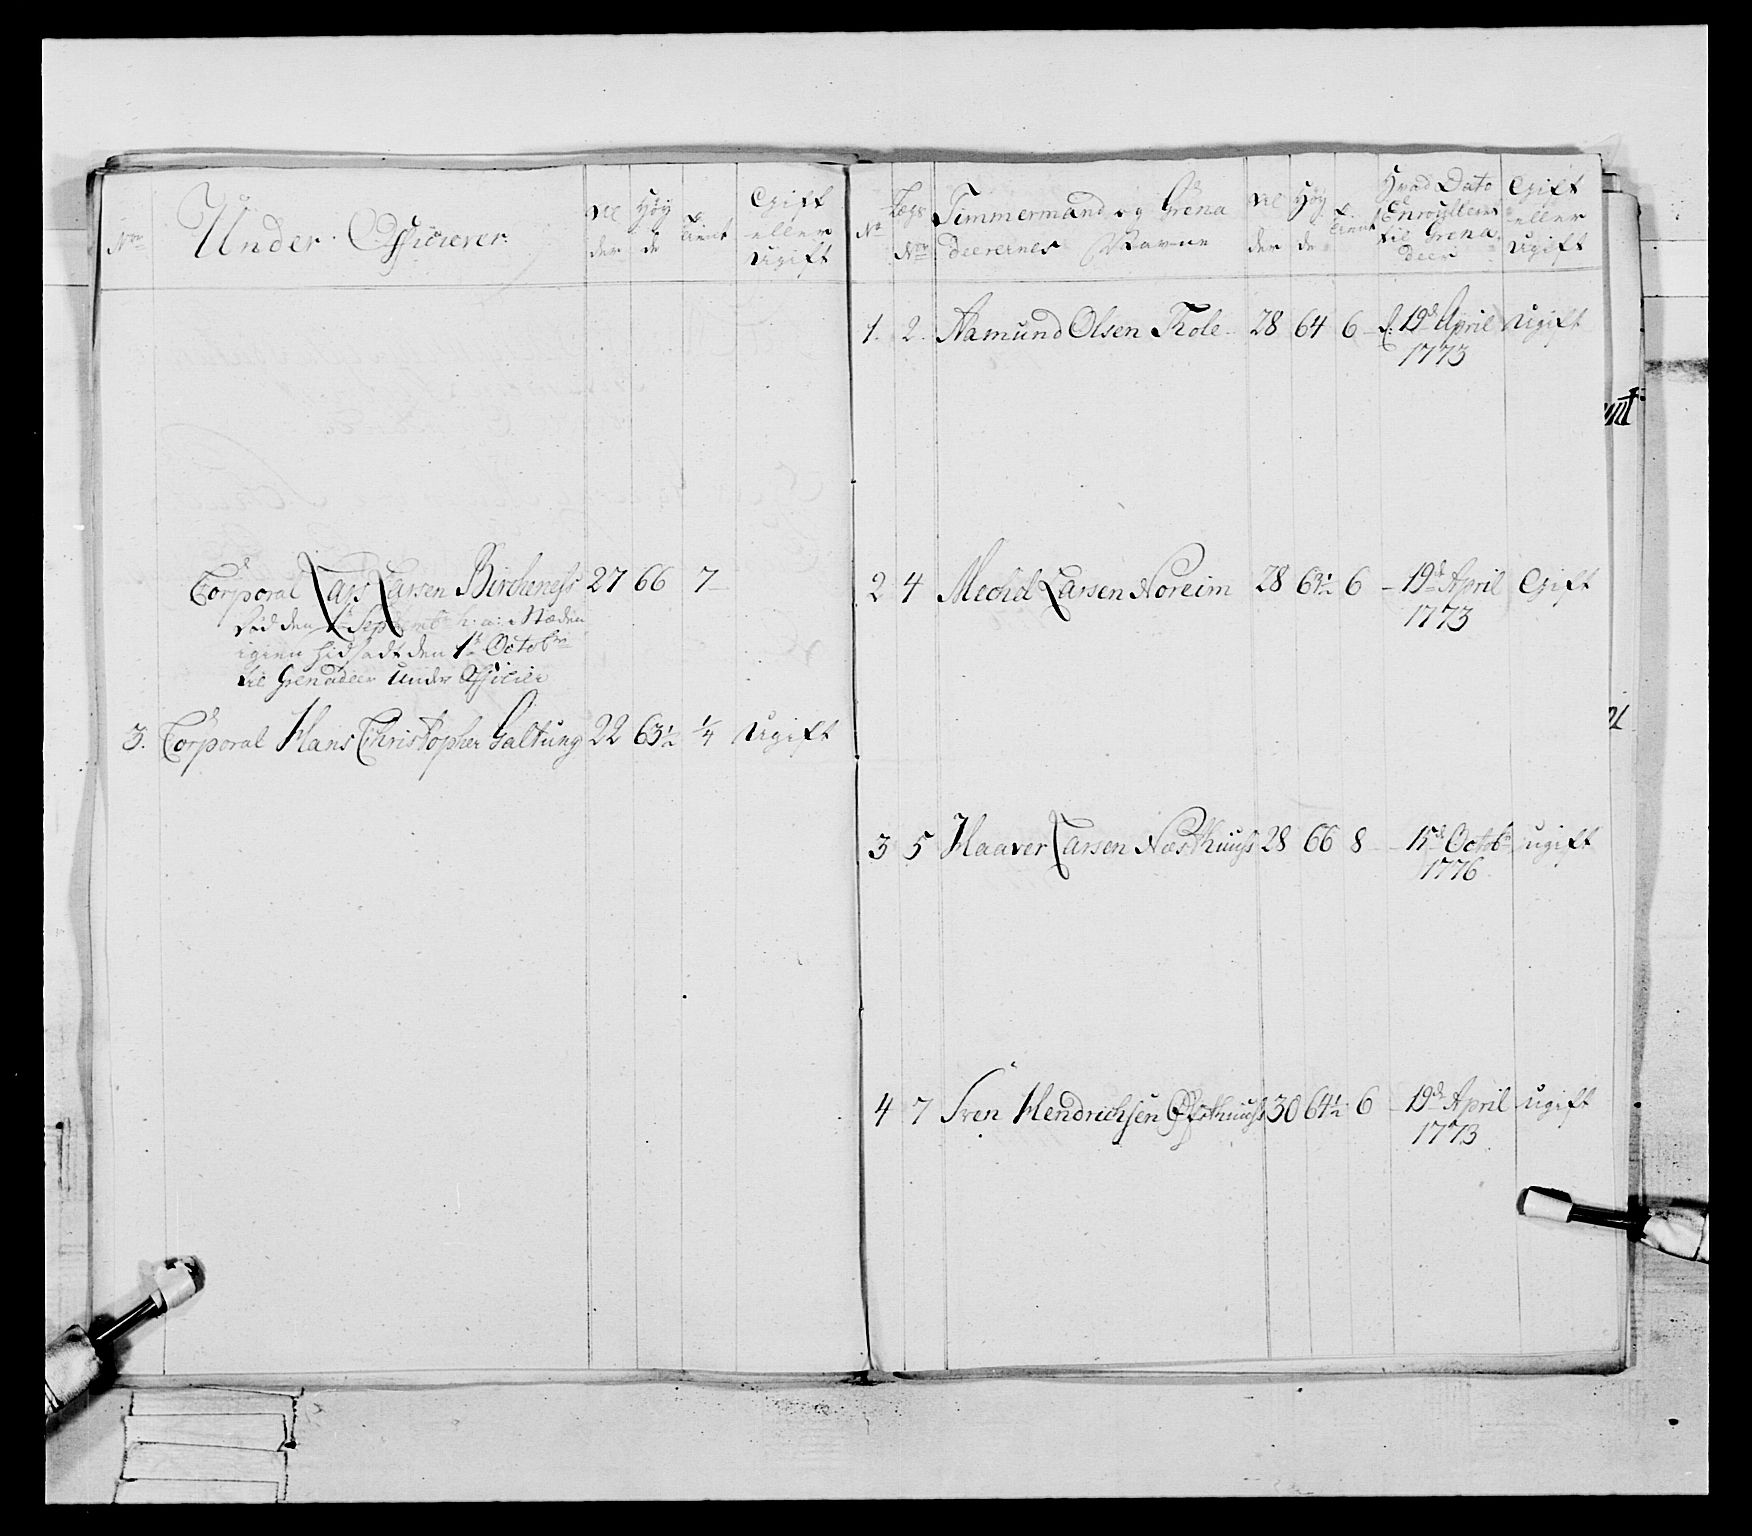 Nor
Under Officierer
Al
der
Høy
de
T
ient
Gift
eller
Ugift
Corporal Lars Larsen Birchenes 27 66 7
den 1te Septembr h: a: Stæden
igien hidsadt den 1te Octobr
til Grenadeer Under Officier
3. Corporal Hans Christopher Galtung 22 63½ ¼ Ugift
No
Legs
Nor
Timmermand og Grena
deerernes Navne
Al
der
Høy
de
T
ient
Hvad Dato
Enroulleret
til Grena
deer
Gift
eller
Ugift
1. 2. Aamund Olsen Tole 28 64 6 d. 19de April Ugift
1773
2 4 Mechel Larsen Noreim 28 63½ 6 19de April Gift
1773
3 5 Haaver Larsen Næsthuus 28 66 8 15de Octobr Ugift
1776
4 7 Sven Hendrichsen Østhuus 30 64½ 6 19de April Ugift
1773